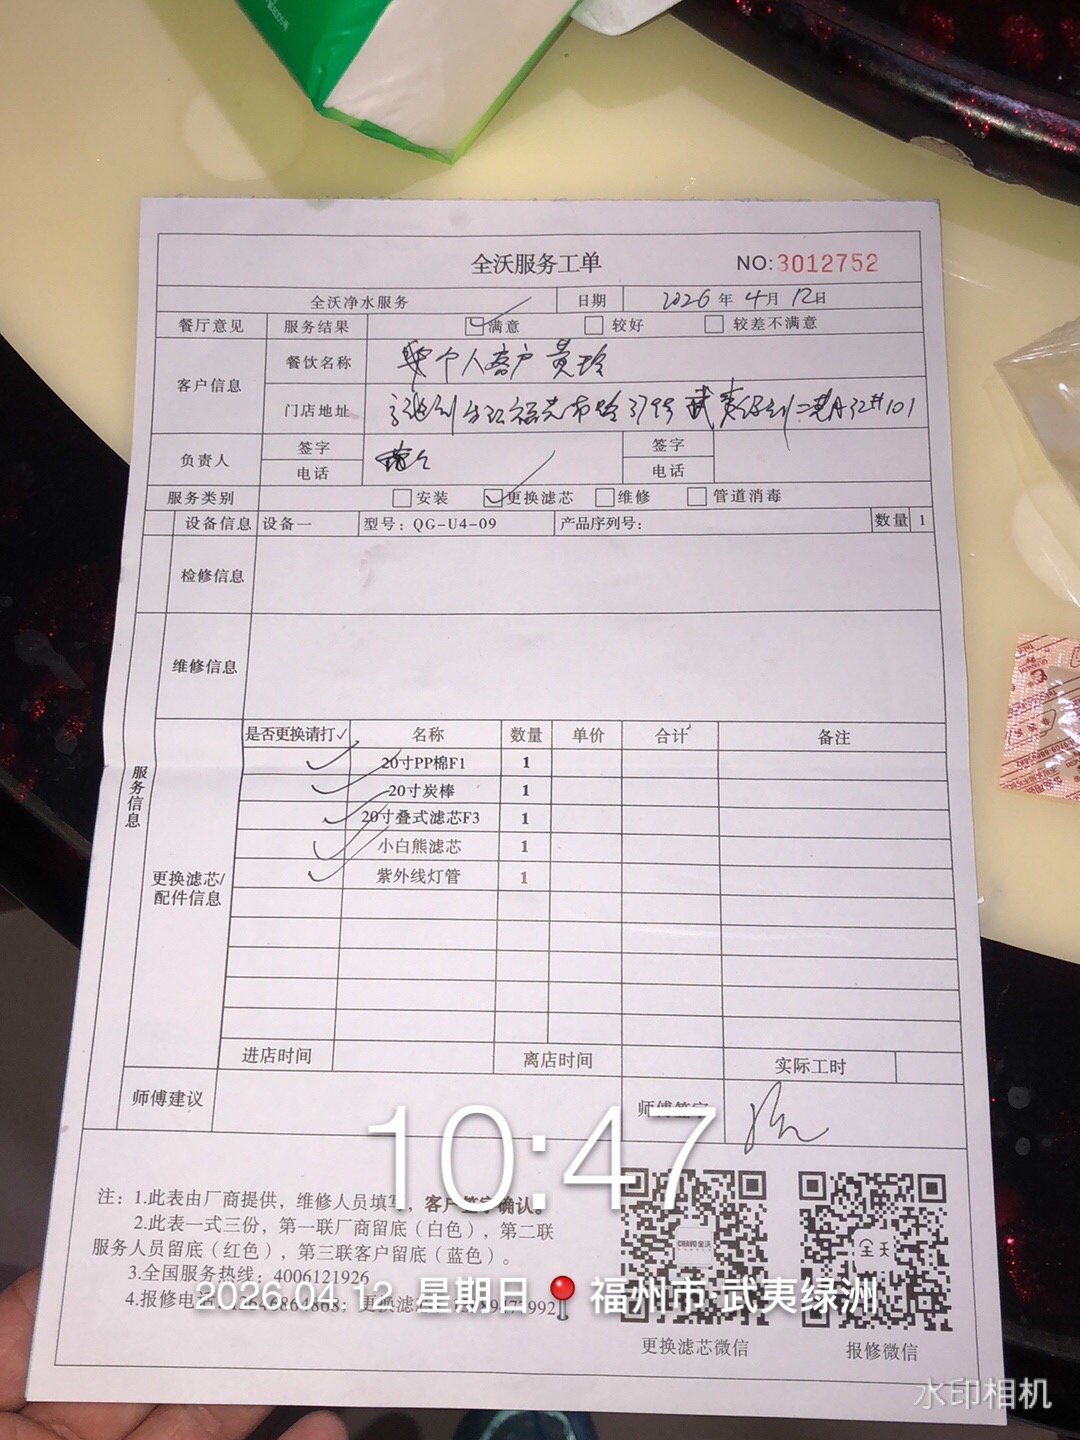 全沃服务工单 NO:3012752
全沃净水服务 日期 2026年4月12日
餐厅意见 服务结果 满意 较好 较差不满意
客户信息 餐饮名称 个人客户 黄玲
门店地址 武夷绿洲 101
负责人 签字 签字
电话 电话
服务类别 安装 更换滤芯 维修 管道消毒
设备信息 设备一 型号：QG-U4-09 产品序列号： 数量 1
检修信息
维修信息
服务信息
更换滤芯/
配件信息
是否更换请打✓ 名称 数量 单价 合计 备注
20寸PP棉F1 1
20寸炭棒 1
20寸叠式滤芯F3 1
小白熊滤芯 1
紫外线灯管 1
进店时间 离店时间 实际工时
师傅建议 师傅签字
10:47
注：1.此表由厂商提供，维修人员填写，客户签字确认。
2.此表一式三份，第一联厂商留底（白色），第二联
服务人员留底（红色），第三联客户留底（蓝色）。
3.全国服务热线：4006121926
4.报修电话
2026.04.12 星期日 福州市·武夷绿洲
CRAVO全沃
全沃
更换滤芯微信 报修微信
水印相机